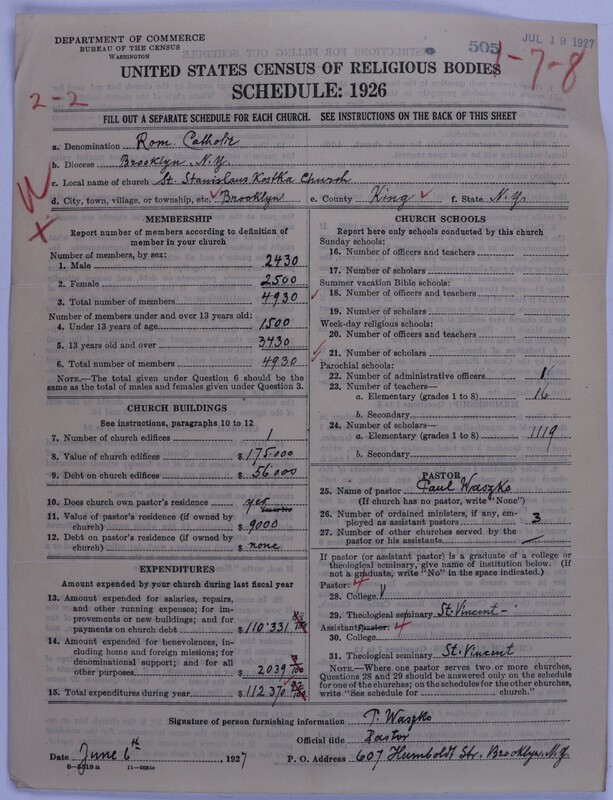 DEPARTMENT OF COMMERCE
BUREAU OF THE CENSUS
WASHINGTON
505
JUL 19 1927
1-7-8
UNITED STATES CENSUS OF RELIGIOUS BODIES
SCHEDULE: 1926
2-2
FILL OUT A SEPARATE SCHEDULE FOR EACH CHURCH. SEE INSTRUCTIONS ON THE BACK OF THIS SHEET
a. Denomination Rom. Catholic
b. Diocese Brooklyn, N.Y.
c. Local name of church St. Stanislaus Kostka Church
d. City, town, village, or township, etc. Brooklyn e. County King f. State N.Y.
MEMBERSHIP
Report number of members according to definition of
member in your church
Number of members, by sex:
1. Male 2430
2. Female 2500
3. Total number of members 4930
Number of members under and over 13 years old:
4. Under 13 years of age 1500
5. 13 years old and over 3430
6. Total number of members 4930
NOTE.—The total given under Question 6 should be the
same as the total of males and females given under Question 3.
CHURCH BUILDINGS
See instructions, paragraphs 10 to 12
7. Number of church edifices 1
8. Value of church edifices $ 175.000
9. Debt on church edifices $ 56.000
10. Does church own pastor's residence yes
11. Value of pastor's residence (if owned by
church) $ 9000
12. Debt on pastor's residence (if owned by
church) $ none
EXPENDITURES
Amount expended by your church during last fiscal year
13. Amount expended for salaries, repairs,
and other running expenses; for im-
provements or new buildings; and for
payments on church debt $ 110.331
14. Amount expended for benevolences, in-
cluding home and foreign missions; for
denominational support; and for all
other purposes $ 2039
15. Total expenditures during year $ 112.370
CHURCH SCHOOLS
Report here only schools conducted by this church
Sunday schools:
16. Number of officers and teachers
17. Number of scholars
Summer vacation Bible schools:
18. Number of officers and teachers
19. Number of scholars
Week-day religious schools:
20. Number of officers and teachers
21. Number of scholars
Parochial schools:
22. Number of administrative officers 1
23. Number of teachers—
a. Elementary (grades 1 to 8) 16
b. Secondary
24. Number of scholars—
a. Elementary (grades 1 to 8) 1119
b. Secondary
PASTOR
25. Name of pastor Paul Waszko
(If church has no pastor, write "None")
26. Number of ordained ministers, if any, em-
ployed as assistant pastors 3
27. Number of other churches served by the
pastor or his assistants —
If pastor (or assistant pastor) is a graduate of a college or
theological seminary, give name of institution below. (If
not a graduate, write "No" in the space indicated.)
Pastor: 4
28. College
29. Theological seminary St. Vincent -
Assistant pastor: 4
30. College
31. Theological seminary St. Vincent
NOTE.—Where one pastor serves two or more churches,
Questions 28 and 29 should be answered only on the schedule
for one of the churches; on the schedules for the other churches,
write "See schedule for church."
Signature of person furnishing information P. Waszko
Official title Pastor
Date June 6th, 1927 P. O. Address 607 Humboldt Str. Brooklyn, N.Y.